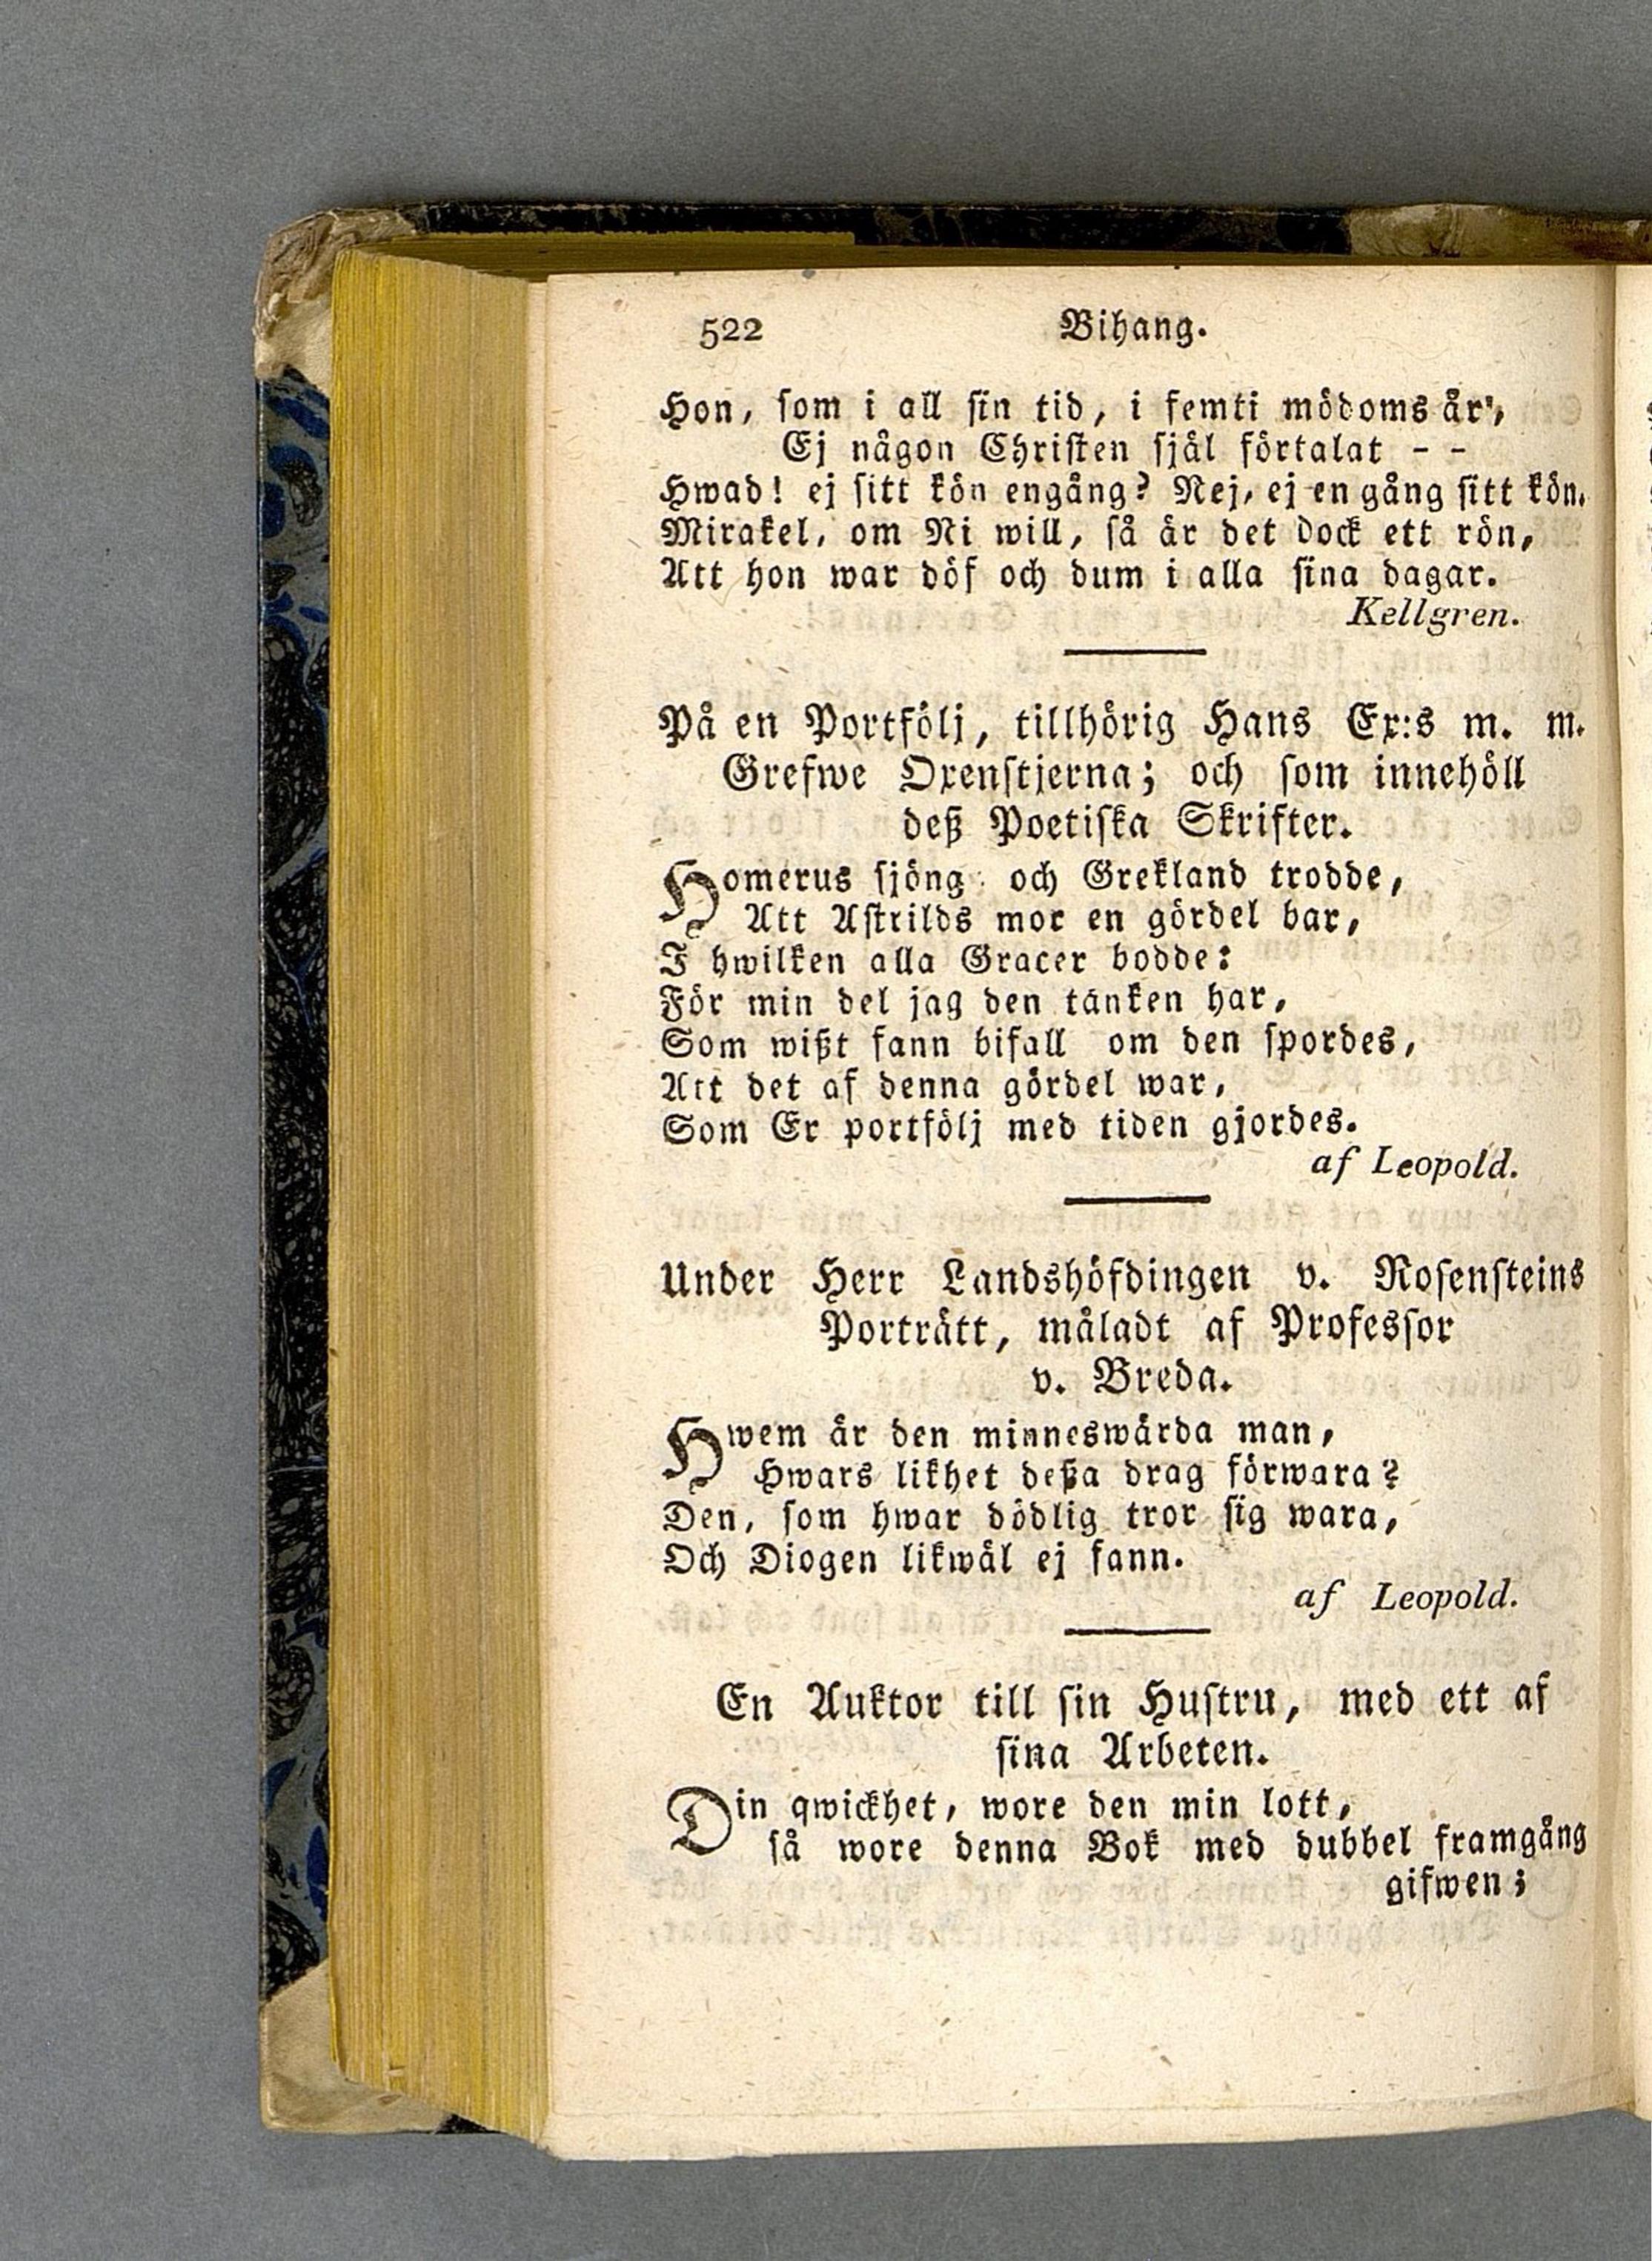 522 Bihang.
Hon, som i all sin tid, i femti mödoms år',
Ej någon Christen själ förtalat - -
Hwad! ej sitt kön engång? Nej, ej en gång sitt kön.
Mirakel, om Ni will, så är det dock ett rön,
Att hon war döf och dum i alla sina dagar.
Kellgren.
På en Portfölj, tillhörig Hans Ex:s m. m.
Grefwe Oxenstjerna; och som innehöll
deß Poetiska Skrifter.
Homerus sjöng och Grekland trodde,
Att Astrilds mor en gördel bar,
I hwilken alla Gracer bodde:
För min del jag den tanken har,
Som wißt fann bifall om den spordes,
Att det af denna gördel war,
Som Er portfölj med tiden gjordes.
af Leopold.
Under Herr Landshöfdingen v. Rosensteins
Porträtt, måladt af Professor
v. Breda.
Hwem är den minneswärda man,
Hwars likhet deßa drag förwara?
Den, som hwar dödlig tror sig wara,
Och Diogen likwäl ej fann.
af Leopold.
En Auktor till sin Hustru, med ett af
sina Arbeten.
Din qwickhet, wore den min lott,
så wore denna Bok med dubbel framgång
gifwen;